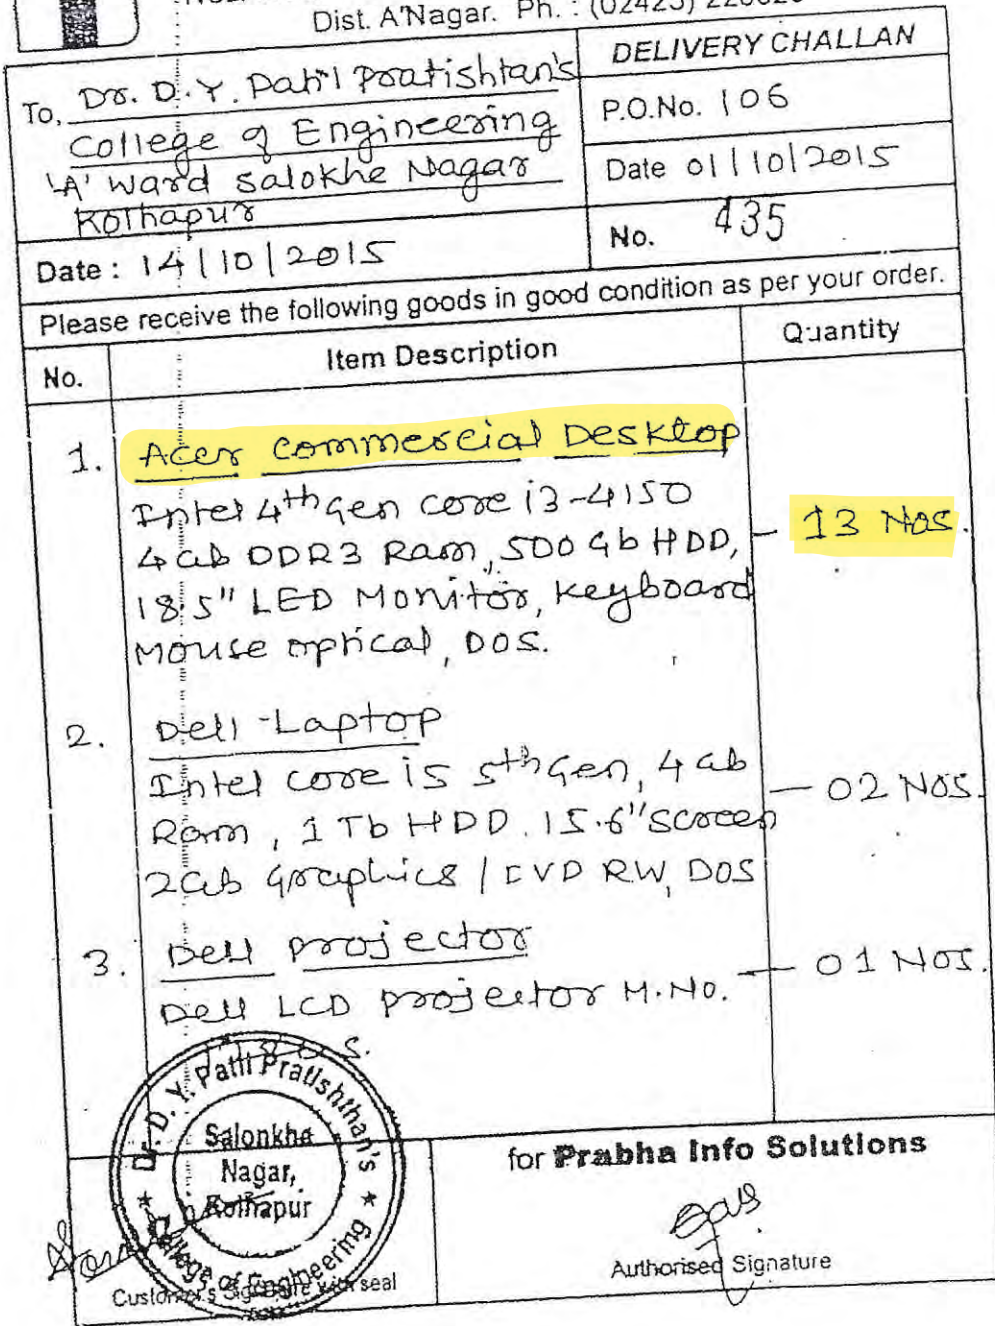 Dist. A'Nagar. Ph. : (02423)
DELIVERY CHALLAN
To, Dr. D. Y. Patil Pratishtan's
College of Engineering
'A' Ward Salokhe Nagar
Kolhapur
P.O.No. 106
Date 01/10/2015
Date : 14/10/2015
No. 435
Please receive the following goods in good condition as per your order.
No. Item Description Quantity
1. Acer Commercial Desktop
Intel 4th Gen core i3-4150
4 Gb DDR3 Ram, 500 Gb HDD, - 13 Nos.
18.5" LED Monitor, Keyboard
Mouse optical, DOS.
2. Dell-Laptop
Intel core i5 5th Gen, 4 Gb - 02 Nos.
Ram, 1 Tb HDD. 15.6" screen
2Gb Graphics / DVD RW, DOS
3. Dell Projector
Dell LCD Projector M.No. - 01 Nos.
Dr. D. Y. Patil Pratishthan's
Salonkhe
Nagar,
Kolhapur
College of Engineering
for Prabha Info Solutions
Customer's Signature with seal
Authorised Signature